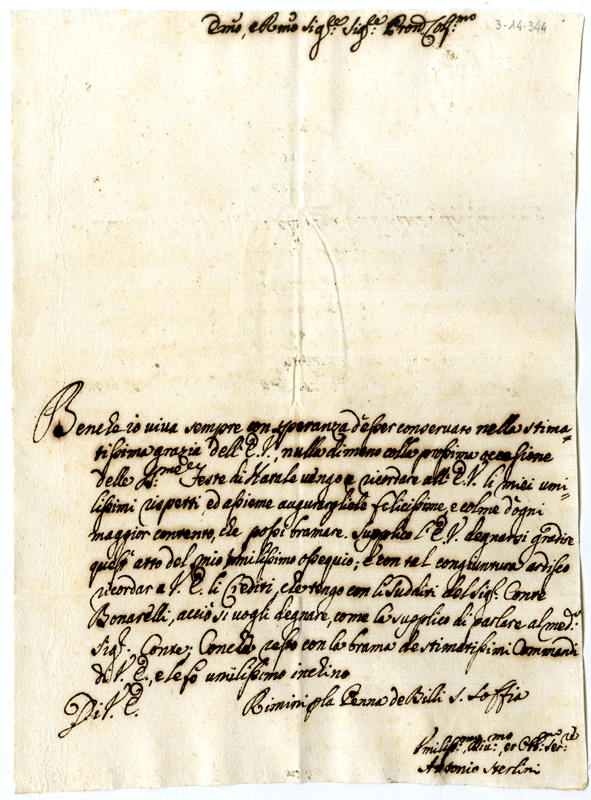 Emo, e Rmo Sig.re Sig.re Pron Col.mo
3-14-344
Benche io viva sempre con speranza d'esser conservato nella stima=
tissima grazia dell'E.V., nulladimeno colla prossima occasione
delle S.me Feste di Natale vengo a ricordare all'E.V. li miei umi=
lissimi rispetti ed assieme augurargliele felicissime, e colme d'ogni
maggior contento, che possi bramare. Supplico l'E.V. degnarsi gradire
quest'atto del mio umilissimo ossequio; e con tal congiuntura ardisco
ricordar a V.E. li Crediti, che tengo con li sudditi del Sig.r Conte
Bonarelli, acciò si vogli degnare, come la supplico di parlare al med.o
Sig.r Conte; Con che resto con la brama de stimatissimi Commandi
di V.E., e le fo umilissimo inchino
Di V.E.
Rimini p la Penna de Billi S. Soffia
Umiliss.mo Ob.mo Ser.re
Antonio Sterlini